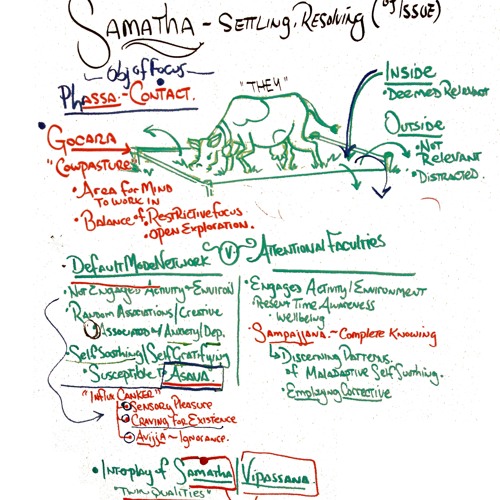 SAMATHA - SETTLING, RESOLVING (OF ISSUE)
Obj of Focus
PHASSA - CONTACT.
"THEY"
INSIDE
• DEEMED RELEVANT
OUTSIDE
• NOT RELEVANT
• DISTRACTED.
• GOCARA
"COWPASTURE"
• AREA FOR MIND
TO WORK IN
• BALANCE of • RESTRICTIVE FOCUS
• OPEN EXPLORATION.
• DEFAULT MODE NETWORK V ATTENTIONAL FACULTIES
• NOT ENGAGED ACTIVITY or ENVIRON
• RANDOM ASSOCIATIONS/CREATIVE
ASSOCIATED w/ ANXIETY/DEP.
• SELF SOOTHING/SELF GRATIFYING
• SUSCEPTIBLE to ASAVA.
"INFLUX CANKER"
SENSORY PLEASURE
CRAVING FOR EXISTENCE
AVIJJA ~ IGNORANCE.
• ENGAGES ACTIVITY/ENVIRONMENT
PRESENT TIME AWARENESS
• WELLBEING
• SAMPAJJANA. ~ COMPLETE KNOWING
DISCERNING PATTERNS.
of MALADAPTIVE SELF SOOTHING.
• EMPLOYING CORRECTIVE
• INTERPLAY of SAMATHA | VIPASSANA
"TWIN QUALITIES"